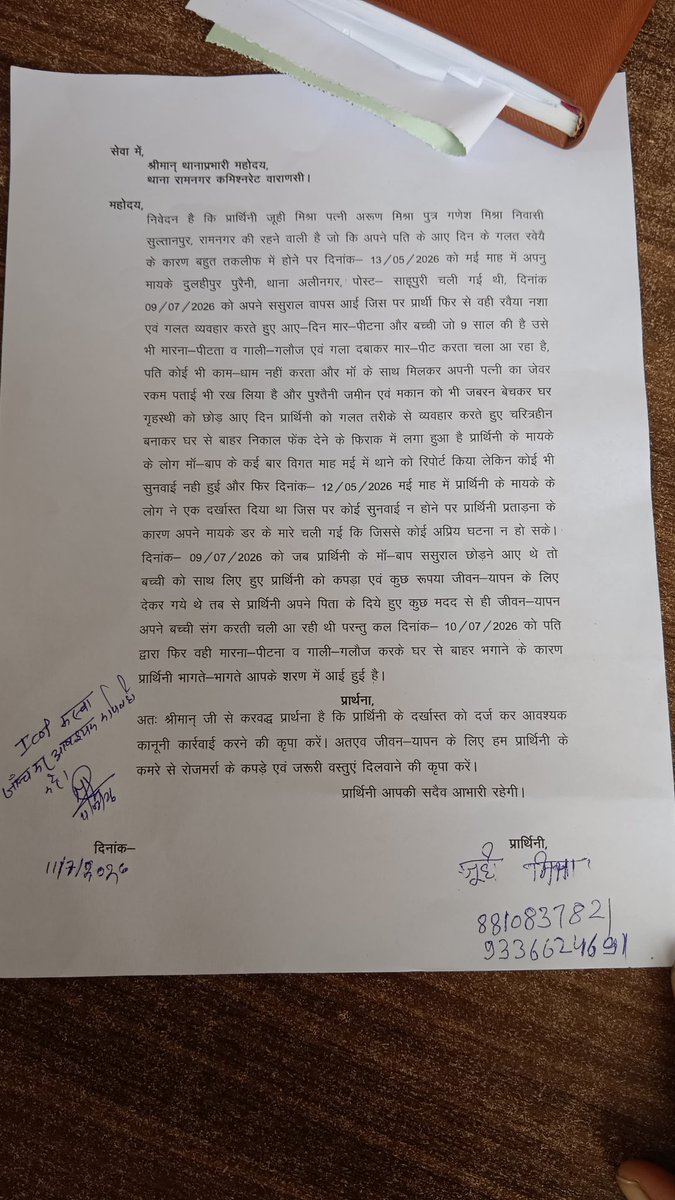 सेवा में,
श्रीमान् थानाप्रभारी महोदय,
थाना रामनगर कमिश्नरेट वाराणसी।
महोदय,
निवेदन है कि प्रार्थिनी जूही मिश्रा पत्नी अरूण मिश्रा पुत्र गणेश मिश्रा निवासी
सुल्तानपुर, रामनगर की रहने वाली है जो कि अपने पति के आए दिन के गलत रवेयै
के कारण बहुत तकलीफ में होने पर दिनांक– 13/05/2026 को मई माह में अपनु
मायके दुलहीपुर पुरैनी, थाना अलीनगर, पोस्ट– साहूपुरी चली गई थी, दिनांक
09/07/2026 को अपने ससुराल वापस आई जिस पर प्रार्थी फिर से वही रवैया नशा
एवं गलत व्यवहार करते हुए आए–दिन मार–पीटना और बच्ची जो 9 साल की है उसे
भी मारना–पीटता व गाली–गलौज एवं गला दबाकर मार–पीट करता चला आ रहा है,
पति कोई भी काम–धाम नहीं करता और मॉ के साथ मिलकर अपनी पत्नी का जेवर
रकम पताई भी रख लिया है और पुश्तैनी जमीन एवं मकान को भी जबरन बेचकर घर
गृहस्थी को छोड़ आए दिन प्रार्थिनी को गलत तरीके से व्यवहार करते हुए चरित्रहीन
बनाकर घर से बाहर निकाल फेंक देने के फिराक में लगा हुआ है प्रार्थिनी के मायके
के लोग मॉ–बाप के कई बार विगत माह मई में थाने को रिपोर्ट किया लेकिन कोई भी
सुनवाई नही हुई और फिर दिनांक– 12/05/2026 मई माह में प्रार्थिनी के मायके के
लोग ने एक दर्खास्त दिया था जिस पर कोई सुनवाई न होने पर प्रार्थिनी प्रताड़ना के
कारण अपने मायके डर के मारे चली गई कि जिससे कोई अप्रिय घटना न हो सके।
दिनांक– 09/07/2026 को जब प्रार्थिनी के मॉ–बाप ससुराल छोड़ने आए थे तो
बच्ची को साथ लिए हुए प्रार्थिनी को कपड़ा एवं कुछ रूपया जीवन–यापन के लिए
देकर गये थे तब से प्रार्थिनी अपने पिता के दिये हुए कुछ मदद से ही जीवन–यापन
अपने बच्ची संग करती चली आ रही थी परन्तु कल दिनांक– 10/07/2026 को पति
द्वारा फिर वही मारना–पीटना व गाली–गलौज करके घर से बाहर भगाने के कारण
प्रार्थिनी भागते–भागते आपके शरण में आई हुई है।
प्रार्थना,
अतः श्रीमान् जी से करवद्ध प्रार्थना है कि प्रार्थिनी के दर्खास्त को दर्ज कर आवश्यक
कानूनी कार्रवाई करने की कृपा करें। अतएव जीवन–यापन के लिए हम प्रार्थिनी के
कमरे से रोजमर्रा के कपड़े एवं जरूरी वस्तुएं दिलवाने की कृपा करें।
प्रार्थिनी आपकी सदैव आभारी रहेगी।
दिनांक–
11/7/2026
प्रार्थिनी,
जूही मिश्रा
8810837821
9336624691